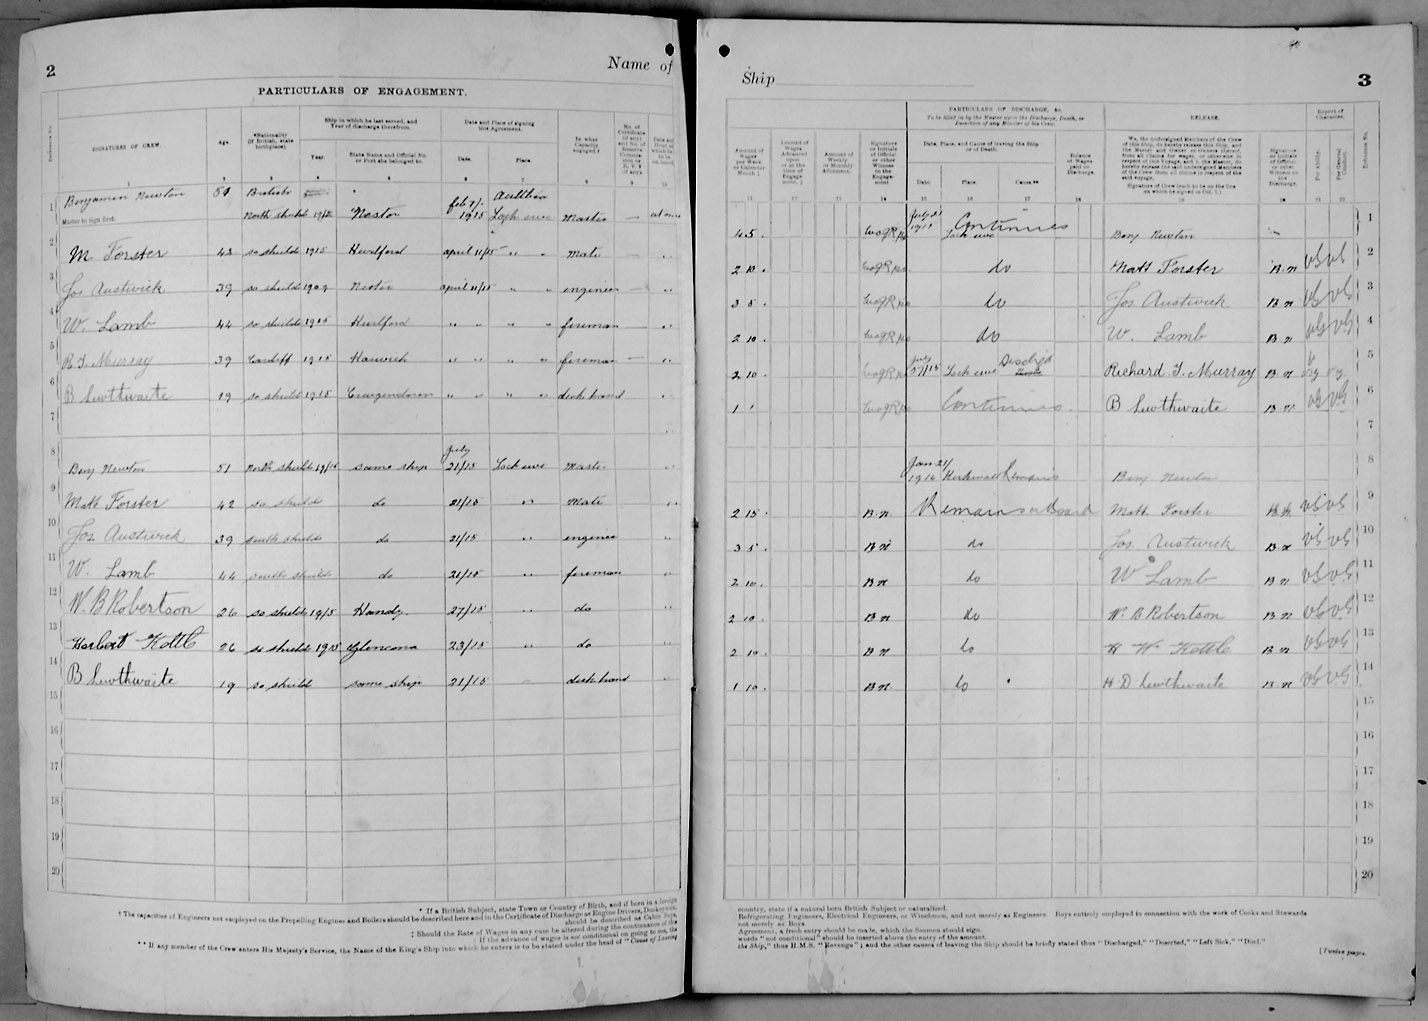 2
Name of
PARTICULARS OF ENGAGEMENT.
SIGNATURES OF CREW.
Age.
*Nationality
(If British, state
birthplace).
Ship in which he last served, and
Year of discharge therefrom.
Year.
State Name and Official No.
or Port she belonged to.
Date and Place of signing
this Agreement.
Date.
Place.
In what
Capacity
engaged.†
No. of
Certificate
(if any)
and No. of
Reserve
Commission
or R. V 2
(if any).
1 Benjamin Newton 51 British
Master to sign first. North Shields feb 1915 Loch ewe Master — at once
2 M Forster 42 so shields 1915 Hurlford april 11/15 " " Mate
3 Jos Austwick 39 so shields april 11/15 " " engineer —
4 W. Lamb 44 so shields 1915 Hurlford " " " " fireman
5 R. J. Murray 39 Cardiff 1915 Harwich " " " " fireman —
6 B Lewthwaite 19 so shields 1915 " " " " deck hand
7
8 Benj Newton 51 North Shields 1915 same ship July 21/15 Loch ewe Master
9 Matt Forster 42 so shields do 21/15 " Mate
10 Jos Austwick 39 south shields do 21/15 " engineer
11 W. Lamb 44 south shields do 21/15 " fireman
12 W. B Robertson 26 so shields 1915 Handy. 27/15 " do
13 Herbert Kettle 26 so shields 1915 Glencona 23/15 " do
14 B Lewthwaite 19 so shields same ship 21/15 deck hand
15
16
17
18
19
20
* If a British Subject, state Town or Country of Birth, and if born in a foreign
† The capacities of Engineers not employed on the Propelling Engines and Boilers should be described here and in the Certificate of Discharge as Engine Drivers, Donkeymen,
should be described as Cabin Boys,
‡ Should the Rate of Wages in any case be altered during the continuance of this
If the advance of wages is not conditional on going to sea, the
** If any member of the Crew enters His Majesty's Service, the Name of the King's Ship into which he enters is to be stated under the head of "Cause of Leaving
Ship
3
Amount of
Wages
per Week
or Calendar
Month ‡
Amount of
Wages
Advanced
upon
or at the
time of
Engage-
ment. ‡
Amount of
Weekly
or Monthly
Allotment.
Signature
or Initials
of Official
or other
Witness
to the
Engage-
ment.
PARTICULARS OF DISCHARGE, &c.
To be filled in by the Master upon the Discharge, Death, or
Desertion of any Member of his Crew.
Date, Place, and Cause of leaving the Ship
or of Death.
Date.
Place.
Cause.**
Balance
of Wages
paid on
Discharge.
RELEASE.
We, the undersigned Members of the Crew
of this Ship, do hereby release this Ship, and
the Master and Owner or Owners thereof,
from all Claims for wages or otherwise in
respect of this Voyage; and I, the Master, do
hereby release the said undersigned Members
of the Crew from all claims in respect of the
said voyage.
Signature of Crew (each to be on the line
on which he signed in Col. 1.)
Signature
or Initials
of Official
or other
Witness to
the
Discharge.
Report of
Character.
For Ability.
For General
Conduct.
Reference No.
11 12 13 14 15 16 17 18 19 20 21 22
4 5. July 21 1915 Loch ewe Continues Benj Newton 1
2 10. do Matt Forster B. N VG VG 2
3 5 do Jos Austwick B N VG VG 3
2 10. do W. Lamb B N VG VG 4
2 10 July 27/15 Loch ewe Dischgd Richard. J. Murray B N vg vg 5
Continues. B Lewthwaite B. N VG VG 6
7
Jan 21/ 1916 Kirkwall Remains Benj Newton 8
2 15. B N Remains on Board Matt Forster VG VG 9
3 5. B N do Jos. Austwick B. N VG VG 10
2 10. B N do W Lamb B N VG VG 11
2 10. B N do W. B Robertson B N VG VG 12
2 10 B N do H W Kettle B. N VG VG 13
1 10. B N do H D Lewthwaite B N VG VG 14
15
16
17
18
19
20
country, state if a natural born British Subject or naturalised.
Refrigerating Engineers, Electrical Engineers, or Winchmen, and not merely as Engineers. Boys entirely employed in connection with the work of Cooks and Stewards
not merely as Boys.
Agreement, a fresh entry should be made, which the Seamen should sign.
words "not conditional" should be inserted above the entry of the amount.
the Ship," thus H.M.S. "Revenge"; and the other causes of leaving the Ship should be briefly stated thus "Discharged," "Deserted," "Left Sick," "Died."
[Twelve pages.